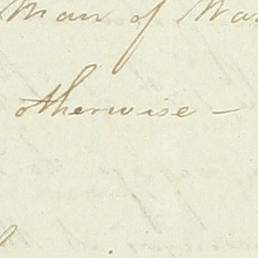 Man of Wa
otherwise —